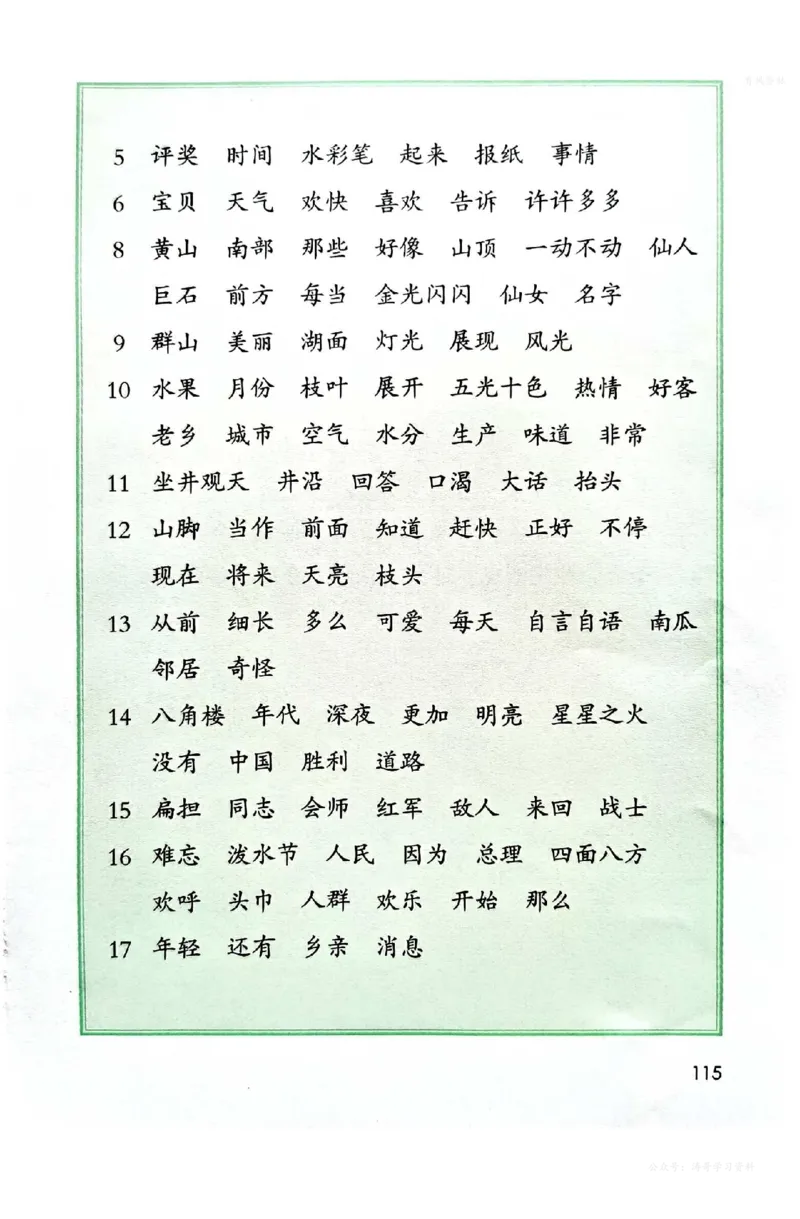 5 评奖 时间 水彩笔 起来 报纸 事情
6 宝贝 天气 欢快 喜欢 告诉 许许多多
8 黄山 南部 那些 好像 山顶 一动不动 仙人
巨石 前方 每当 金光闪闪 仙女 名字
9 群山 美丽 湖面 灯光 展现 风光
10 水果 月份 枝叶 展开 五光十色 热情 好客
老乡 城市 空气 水分 生产 味道 非常
11 坐井观天 井沿 回答 口渴 大话 抬头
12 山脚 当作 前面 知道 赶快 正好 不停
现在 将来 天亮 枝头
13 从前 细长 多么 可爱 每天 自言自语 南瓜
邻居 奇怪
14 八角楼 年代 深夜 更加 明亮 星星之火
没有 中国 胜利 道路
15 扁担 同志 会师 红军 敌人 来回 战士
16 难忘 泼水节 人民 因为 总理 四面八方
欢呼 头巾 人群 欢乐 开始 那么
17 年轻 还有 乡亲 消息
115